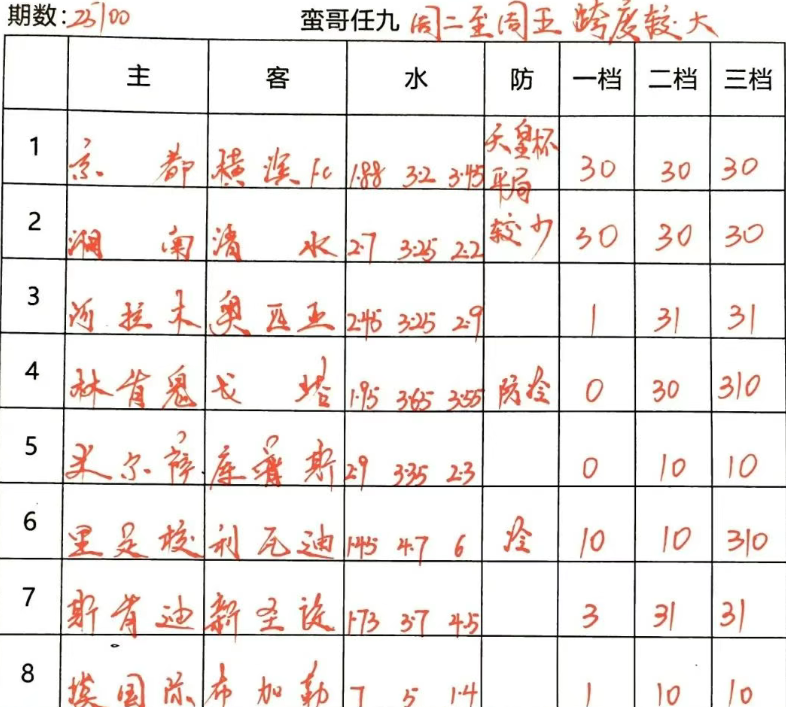 期数:25100 蛮哥任九 周二至周五 跨度较大
主 客 水 防 一档 二档 三档
1 京都 横滨Fc 1.88 3.2 3.45 天皇杯平局 30 30 30
2 湘南 清水 2.7 3.25 2.2 较少 30 30 30
3 阿拉木 奥匹亚 2.45 3.25 2.9 1 31 31
4 林肯 戈塔 1.95 3.65 3.55 防冷 0 30 310
5 米尔 库普斯 2.9 3.35 2.3 0 10 10
6 里足校 利瓦迪 1.45 4.7 6 冷 10 10 310
7 斯肯迪 新圣 1.73 3.7 4.5 3 31 31
8 国际 布加勒 7 5 1.4 1 10 10